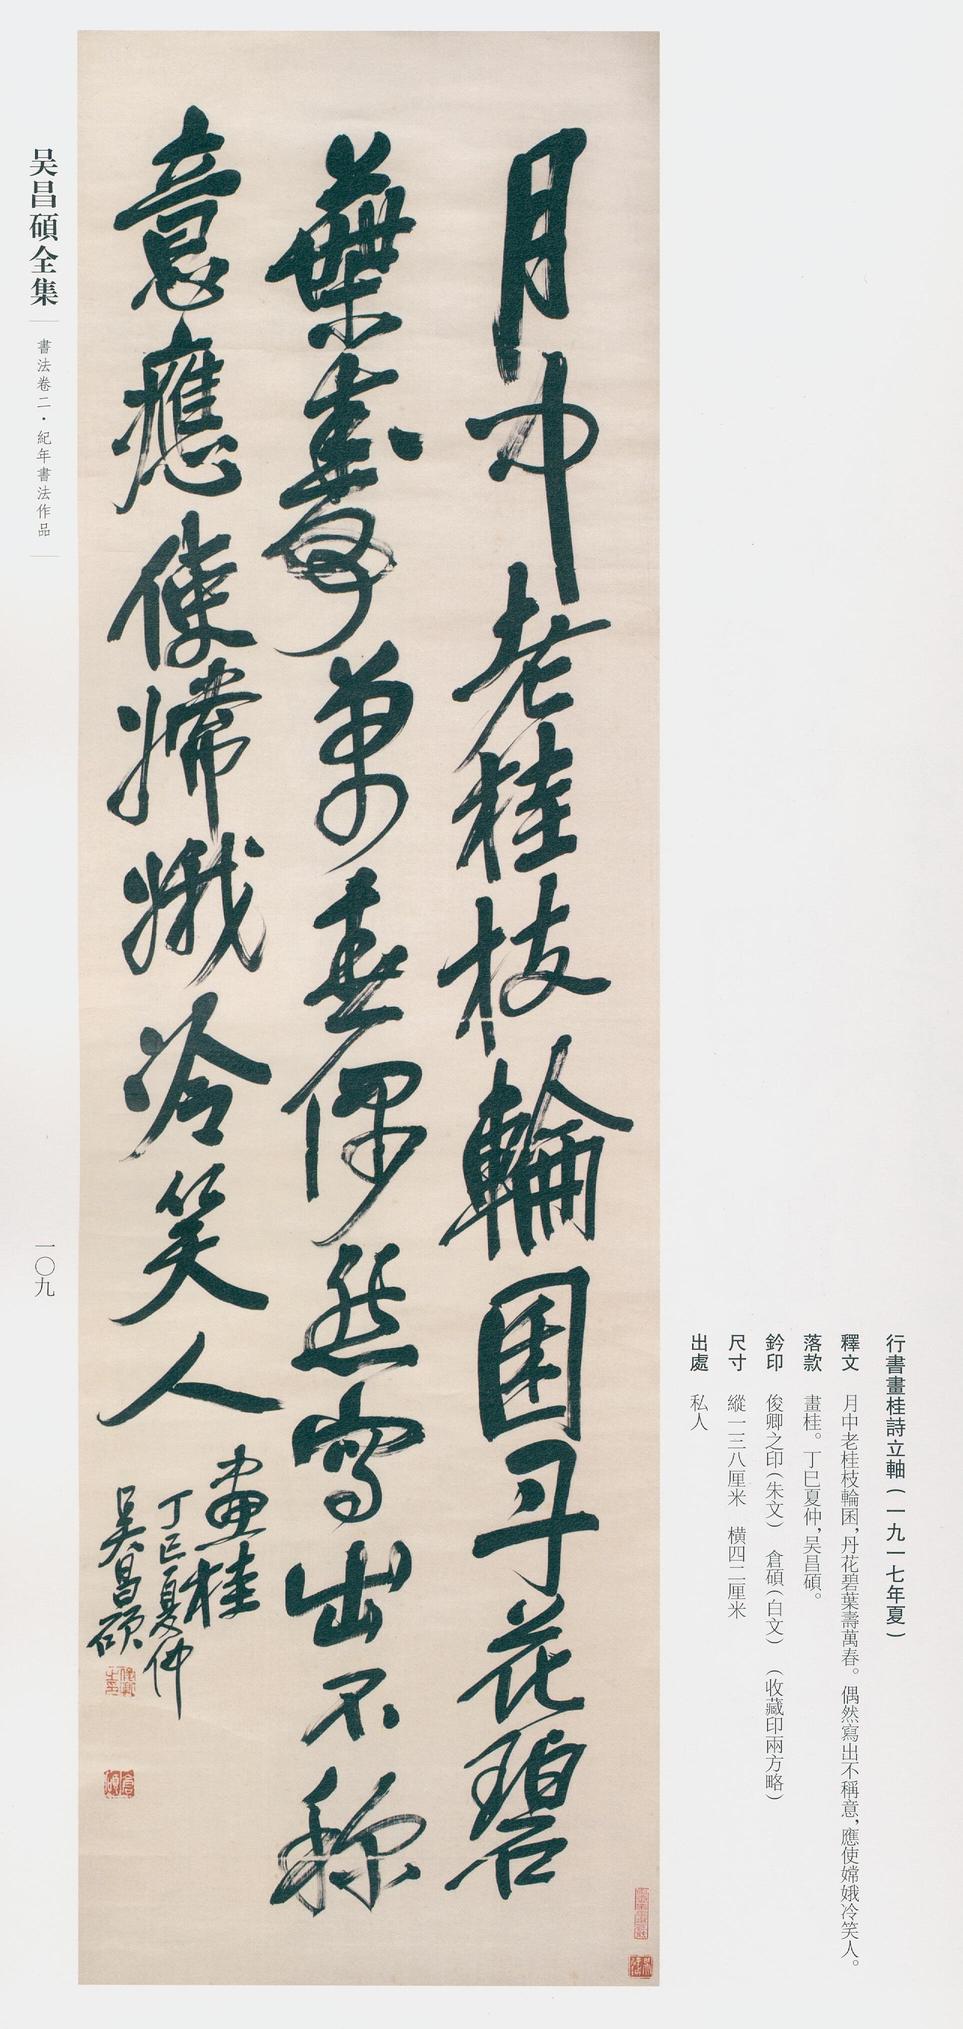 月中老桂枝輪囷丹花碧
葉壽萬春偶然寫出不称
意應使嫦娥冷笑人
畫桂
丁巳夏仲
吴昌碩
行書畫桂詩立軸（一九一七年夏）
釋文　月中老桂枝輪囷，丹花碧葉壽萬春。偶然寫出不稱意，應使嫦娥冷笑人。
落款　畫桂。丁巳夏仲，吴昌碩。
鈐印　俊卿之印（朱文）　倉碩（白文）　（收藏印兩方略）
尺寸　縱一三八厘米　橫四二厘米
出處　私人
吴昌碩全集
書法卷二・紀年書法作品
一〇九